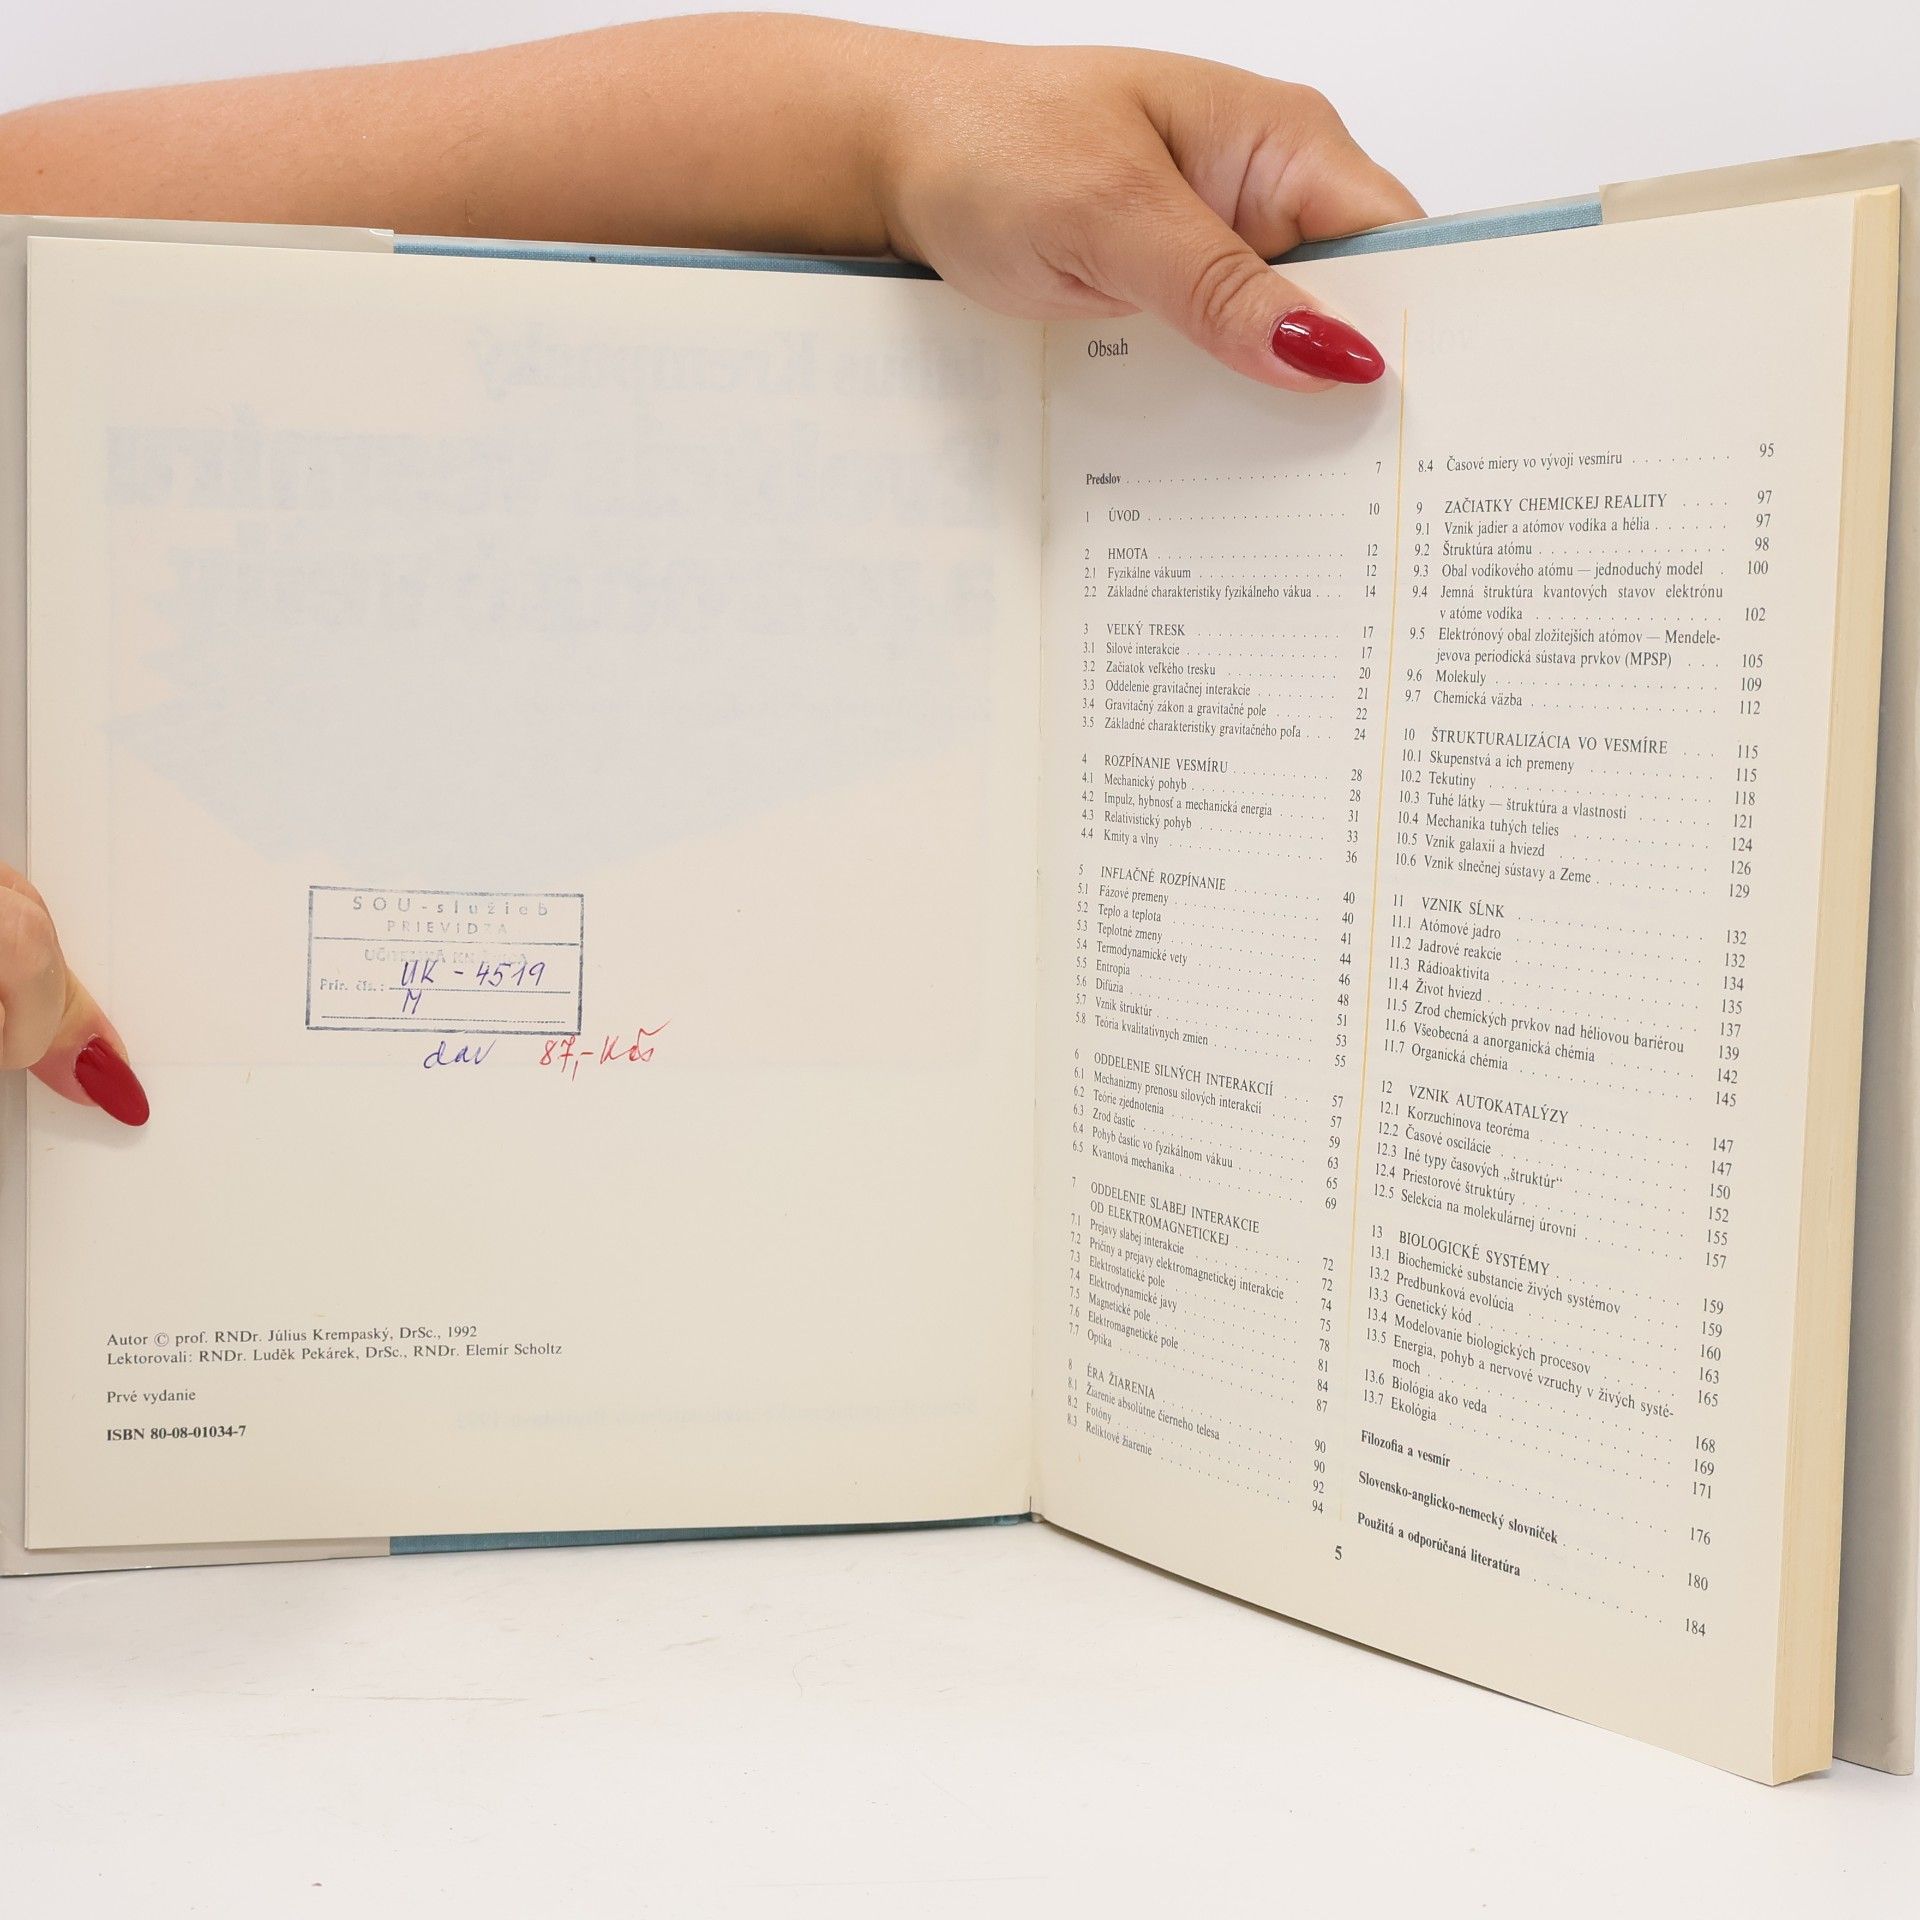 SOU-služieb
PRIEVIDZA
UČITEĽSKÁ KNIŽNICA
Prír. čís.: UK - 4519
M
dar 87,- Kčs
Autor © prof. RNDr. Július Krempaský, DrSc., 1992
Lektorovali: RNDr. Luděk Pekárek, DrSc., RNDr. Elemír Scholtz
Prvé vydanie
ISBN 80-08-01034-7
Obsah
Predslov . . . 7
1 ÚVOD . . . 10
2 HMOTA . . . 12
2.1 Fyzikálne vákuum . . . 12
2.2 Základné charakteristiky fyzikálneho vákua . . . 14
3 VEĽKÝ TRESK . . . 17
3.1 Silové interakcie . . . 17
3.2 Začiatok veľkého tresku . . . 20
3.3 Oddelenie gravitačnej interakcie . . . 21
3.4 Gravitačný zákon a gravitačné pole . . . 22
3.5 Základné charakteristiky gravitačného poľa . . . 24
4 ROZPÍNANIE VESMÍRU . . . 28
4.1 Mechanický pohyb . . . 28
4.2 Impulz, hybnosť a mechanická energia . . . 31
4.3 Relativistický pohyb . . . 33
4.4 Kmity a vlny . . . 36
5 INFLAČNÉ ROZPÍNANIE . . . 40
5.1 Fázové premeny . . . 40
5.2 Teplo a teplota . . . 41
5.3 Teplotné zmeny . . . 44
5.4 Termodynamické vety . . . 46
5.5 Entropia . . . 48
5.6 Difúzia . . . 51
5.7 Vznik štruktúr . . . 53
5.8 Teória kvalitatívnych zmien . . . 55
6 ODDELENIE SILNÝCH INTERAKCIÍ . . . 57
6.1 Mechanizmy prenosu silových interakcií . . . 57
6.2 Teórie zjednotenia . . . 59
6.3 Zrod častíc . . . 63
6.4 Pohyb častíc vo fyzikálnom vákuu . . . 65
6.5 Kvantová mechanika . . . 69
7 ODDELENIE SLABEJ INTERAKCIE
OD ELEKTROMAGNETICKEJ . . . 72
7.1 Prejavy slabej interakcie . . . 72
7.2 Príčiny a prejavy elektromagnetickej interakcie . 74
7.3 Elektrostatické pole . . . 75
7.4 Elektrodynamické javy . . . 78
7.5 Magnetické pole . . . 81
7.6 Elektromagnetické pole . . . 84
7.7 Optika . . . 87
8 ÉRA ŽIARENIA . . . 90
8.1 Žiarenie absolútne čierneho telesa . . . 90
8.2 Fotóny . . . 92
8.3 Reliktové žiarenie . . . 94
8.4 Časové miery vo vývoji vesmíru . . . 95
9 ZAČIATKY CHEMICKEJ REALITY . . . 97
9.1 Vznik jadier a atómov vodíka a hélia . . . 97
9.2 Štruktúra atómu . . . 98
9.3 Obal vodíkového atómu — jednoduchý model . 100
9.4 Jemná štruktúra kvantových stavov elektrónu
v atóme vodíka . . . 102
9.5 Elektrónový obal zložitejších atómov — Mendele-
jevova periodická sústava prvkov (MPSP) . . . 105
9.6 Molekuly . . . 109
9.7 Chemická väzba . . . 112
10 ŠTRUKTURALIZÁCIA VO VESMÍRE . . . 115
10.1 Skupenstvá a ich premeny . . . 115
10.2 Tekutiny . . . 118
10.3 Tuhé látky — štruktúra a vlastnosti . . . 121
10.4 Mechanika tuhých telies . . . 124
10.5 Vznik galaxií a hviezd . . . 126
10.6 Vznik slnečnej sústavy a Zeme . . . 129
11 VZNIK SĹNK . . . 132
11.1 Atómové jadro . . . 132
11.2 Jadrové reakcie . . . 134
11.3 Rádioaktivita . . . 135
11.4 Život hviezd . . . 137
11.5 Zrod chemických prvkov nad héliovou bariérou 139
11.6 Všeobecná a anorganická chémia . . . 142
11.7 Organická chémia . . . 145
12 VZNIK AUTOKATALÝZY . . . 147
12.1 Korzuchinova teoréma . . . 147
12.2 Časové oscilácie . . . 150
12.3 Iné typy časových „štruktúr“ . . . 152
12.4 Priestorové štruktúry . . . 155
12.5 Selekcia na molekulárnej úrovni . . . 157
13 BIOLOGICKÉ SYSTÉMY . . . 159
13.1 Biochemické substancie živých systémov . . . 159
13.2 Predbunková evolúcia . . . 160
13.3 Genetický kód . . . 163
13.4 Modelovanie biologických procesov . . . 165
13.5 Energia, pohyb a nervové vzruchy v živých systé-
moch . . . 168
13.6 Biológia ako veda . . . 169
13.7 Ekológia . . . 171
Filozofia a vesmír . . . 176
Slovensko-anglicko-nemecký slovníček . . . 180
Použitá a odporúčaná literatúra . . . 184
5